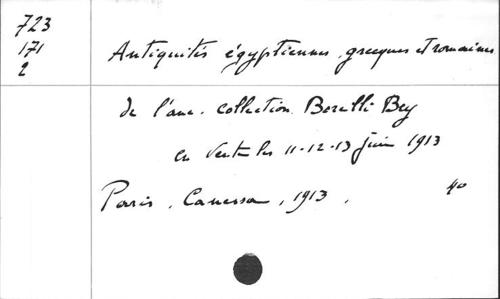 723
171
2
Antiquités égyptiennes, grecques et romaines
de l'anc. collection Borelli Bey
en vente les 11-12-13 juin 1913
Paris, Canessa, 1913.
4o